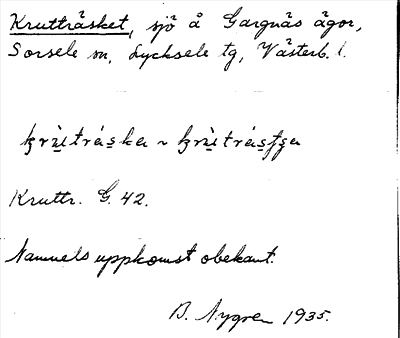 Krutträsket, sjö å Gargnäs ägor,
Sorsele sn, Lycksele tg, Västerb. l.
Kruttr. G. 42.
Namnets uppkomst obekant.
B. Nygren 1935.